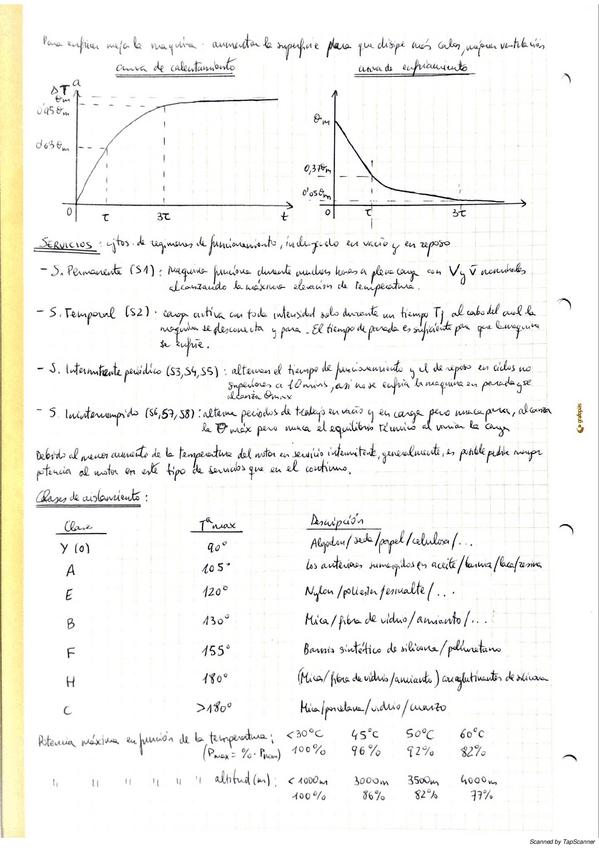 Para enfriar mejor la maquina: aumentar la superficie para que disipe más calor, mejorar ventilación
curva de calentamiento
curva de enfriamiento
ΔT
θm
0'95θm
0'63θm
0
τ
3τ
t
θm
0,37θm
0'05θm
0
τ
3τ
SERVICIOS: de regimenes de funcionamiento, incluyendo en vacío y en reposo
- S. Permanente (S1): maquina funciona durante muchas horas a plena carga con V y nominales
alcanzando la máxima elevación de temperatura.
- S. Temporal (S2): carga activa con toda intensidad solo durante un tiempo Tj al cabo del cual la
maquina se desconecta y para. El tiempo de parada es suficiente para que la maquina
se enfríe.
- S. Intermitente periódico (S3, S4, S5): alternan el tiempo de funcionamiento y el de reposo en ciclos no
superiores a 10 mins, así no se enfría la maquina en parada y se
alcanza θmax
- S. Ininterrumpido (S6, S7, S8): alterna periodos de trabajo en vacío y en carga pero nunca para, alcanza
la θ máx pero nunca el equilibrio térmico al variar la carga
Debido al menor aumento de la temperatura del motor en servicio intermitente, generalmente, es posible pedir mayor
potencia al motor en este tipo de servicios que en el continuo.
Clases de aislamiento:
Clase Tª max Descripción
Y (0) 90° Algodon/seda/papel/celulosa/...
A 105° Los anteriores sumergidos en aceite/barniz/laca/resina
E 120° Nylon/poliester/esmalte/...
B 130° Mica/fibra de vidrio/amianto/...
F 155° Barniz sintético de silicona/poliuretano
H 180° (Mica/fibra de vidrio/amianto) aglutinantes de silicona
C >180° Mica/porcelana/vidrio/cuarzo
Potencia máxima en función de la temperatura: <30°C 45°C 50°C 60°C
(Pmax = % · Pnom) 100% 96% 92% 82%
" " " " " altitud (m): <1000m 3000m 3500m 4000m
100% 86% 82% 77%
Scanned by TapScanner